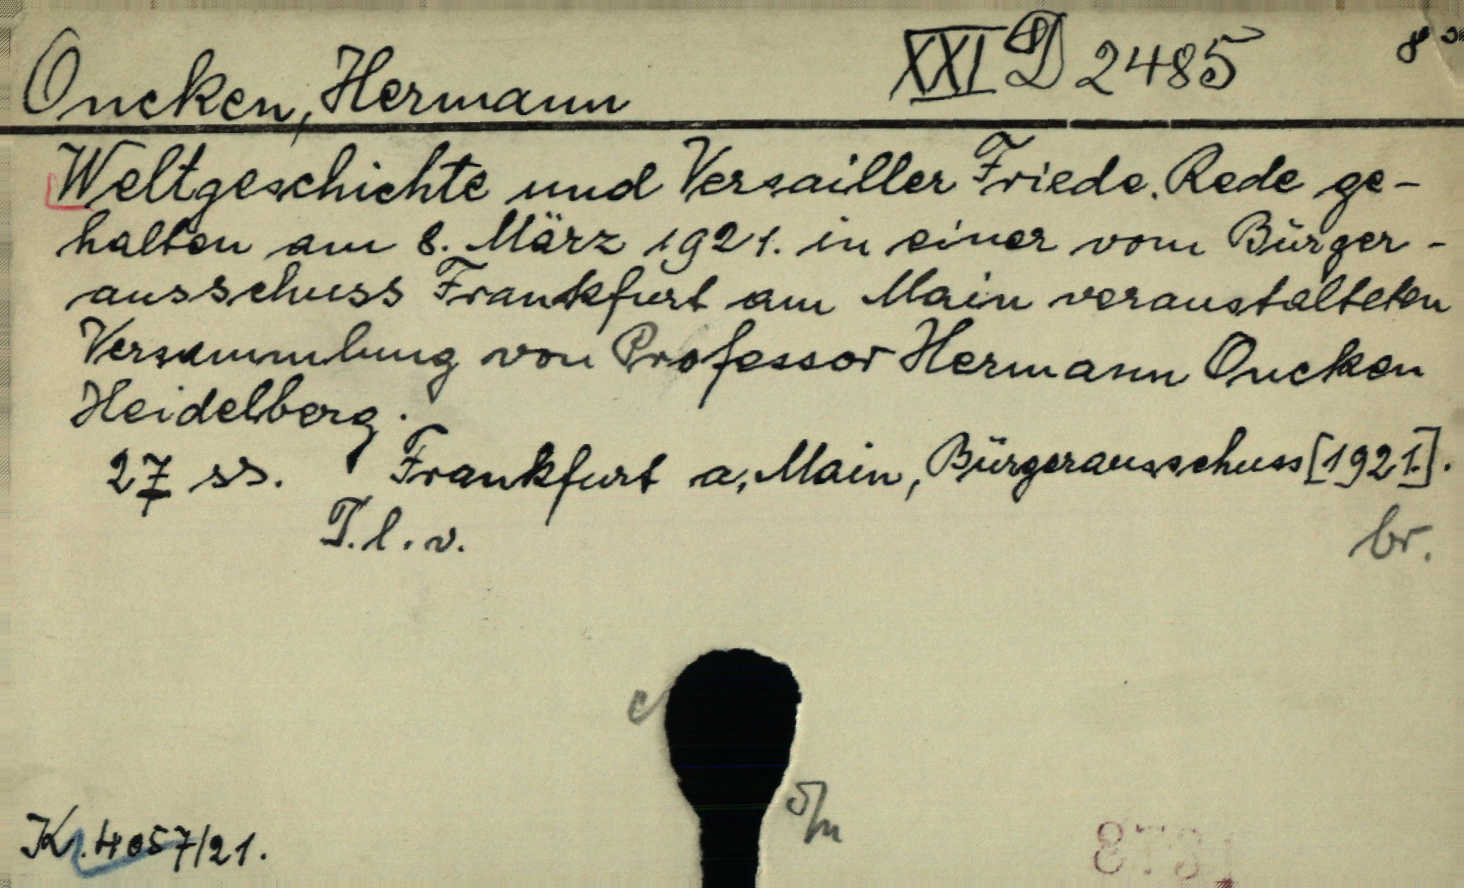 Oncken, Hermann XXI D 2485 8°
Weltgeschichte und Versailler Friede. Rede ge-
halten am 8. März 1921. in einer vom Bürger-
ausschuss Frankfurt am Main veranstalteten
Versammlung von Professor Hermann Oncken
Heidelberg.
27 ss. Frankfurt a, Main, Bürgerausschuss [1921].
T. l. v. br.
K. 4057/21.